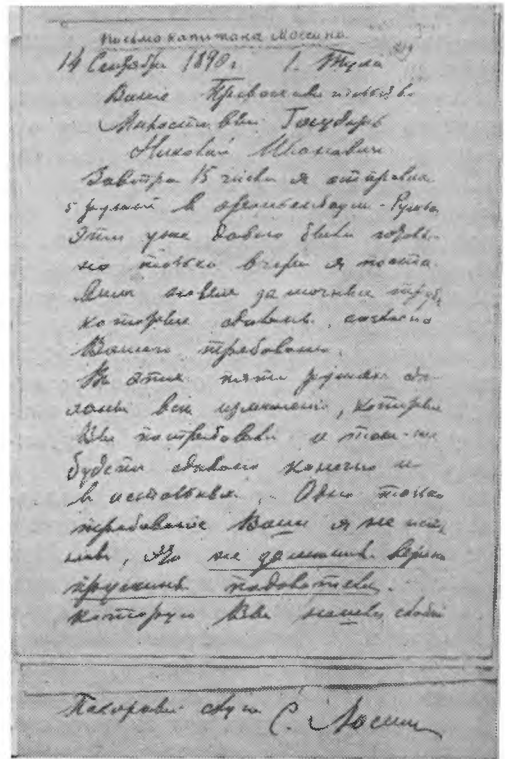 Письмо капитана Мосина
14 Сентября 1890 г. г. Тула
Ваше Превосходительство
Милостивый Государь
Николай Иванович
Завтра 15 числа я отправлю
5 ружей в
Эти уже давно были готовы
но только вчера я поста
новые
которые сделаны согласно
Вашего требования.
В этих пяти ружьях сде
ланы все изменения, которые
Вы потребовали и тоже
будет сделано конечно и
в остальных. Одно только
требование Ваше я не испол
нил, это не заменил верхн
пружины подавателя,
которую Вы нашли слабой
Покорный слуга С. Мосин